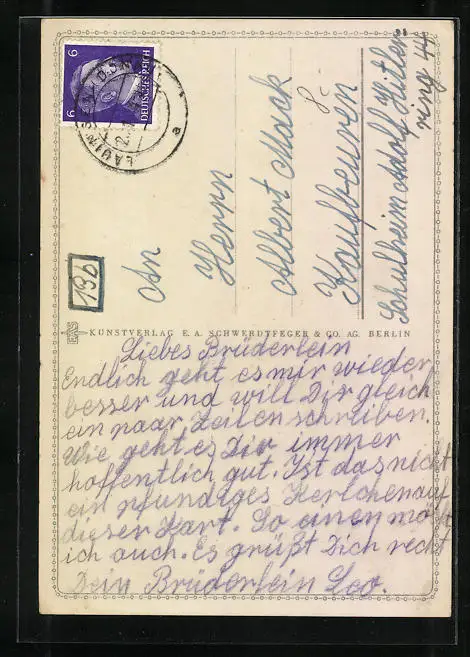 6
6
DEUTSCHES REICH
An
Herrn
Albert Mack
8.-
Kaufbeuren
Schulheim Adolf Hitler
ring 44
19b
KUNSTVERLAG E. A. SCHWERDTFEGER & CO. AG. BERLIN
Liebes Brüderlein
Endlich geht es mir wieder
besser und will Dir gleich
ein paar Zeilen schreiben.
Wie geht es Dir immer
hoffentlich gut. Ist das nicht
ein pfundiges Kerlchen auf
dieser Kart. So einen möcht
ich auch. Es grüßt Dich recht
Dein Brüderlein Leo.